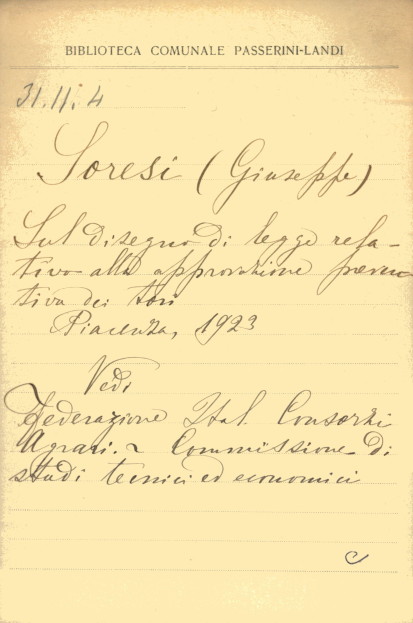 BIBLIOTECA COMUNALE PASSERINI-LANDI
31.II.4
Soresi (Giuseppe)
Sul disegno di legge rela-
tivo alla approvazione preven-
tiva dei tori
Piacenza, 1923
Vedi
Federazione Ital. Consorzi
Agrari. ~ Commissione di
studi tecnici ed economici